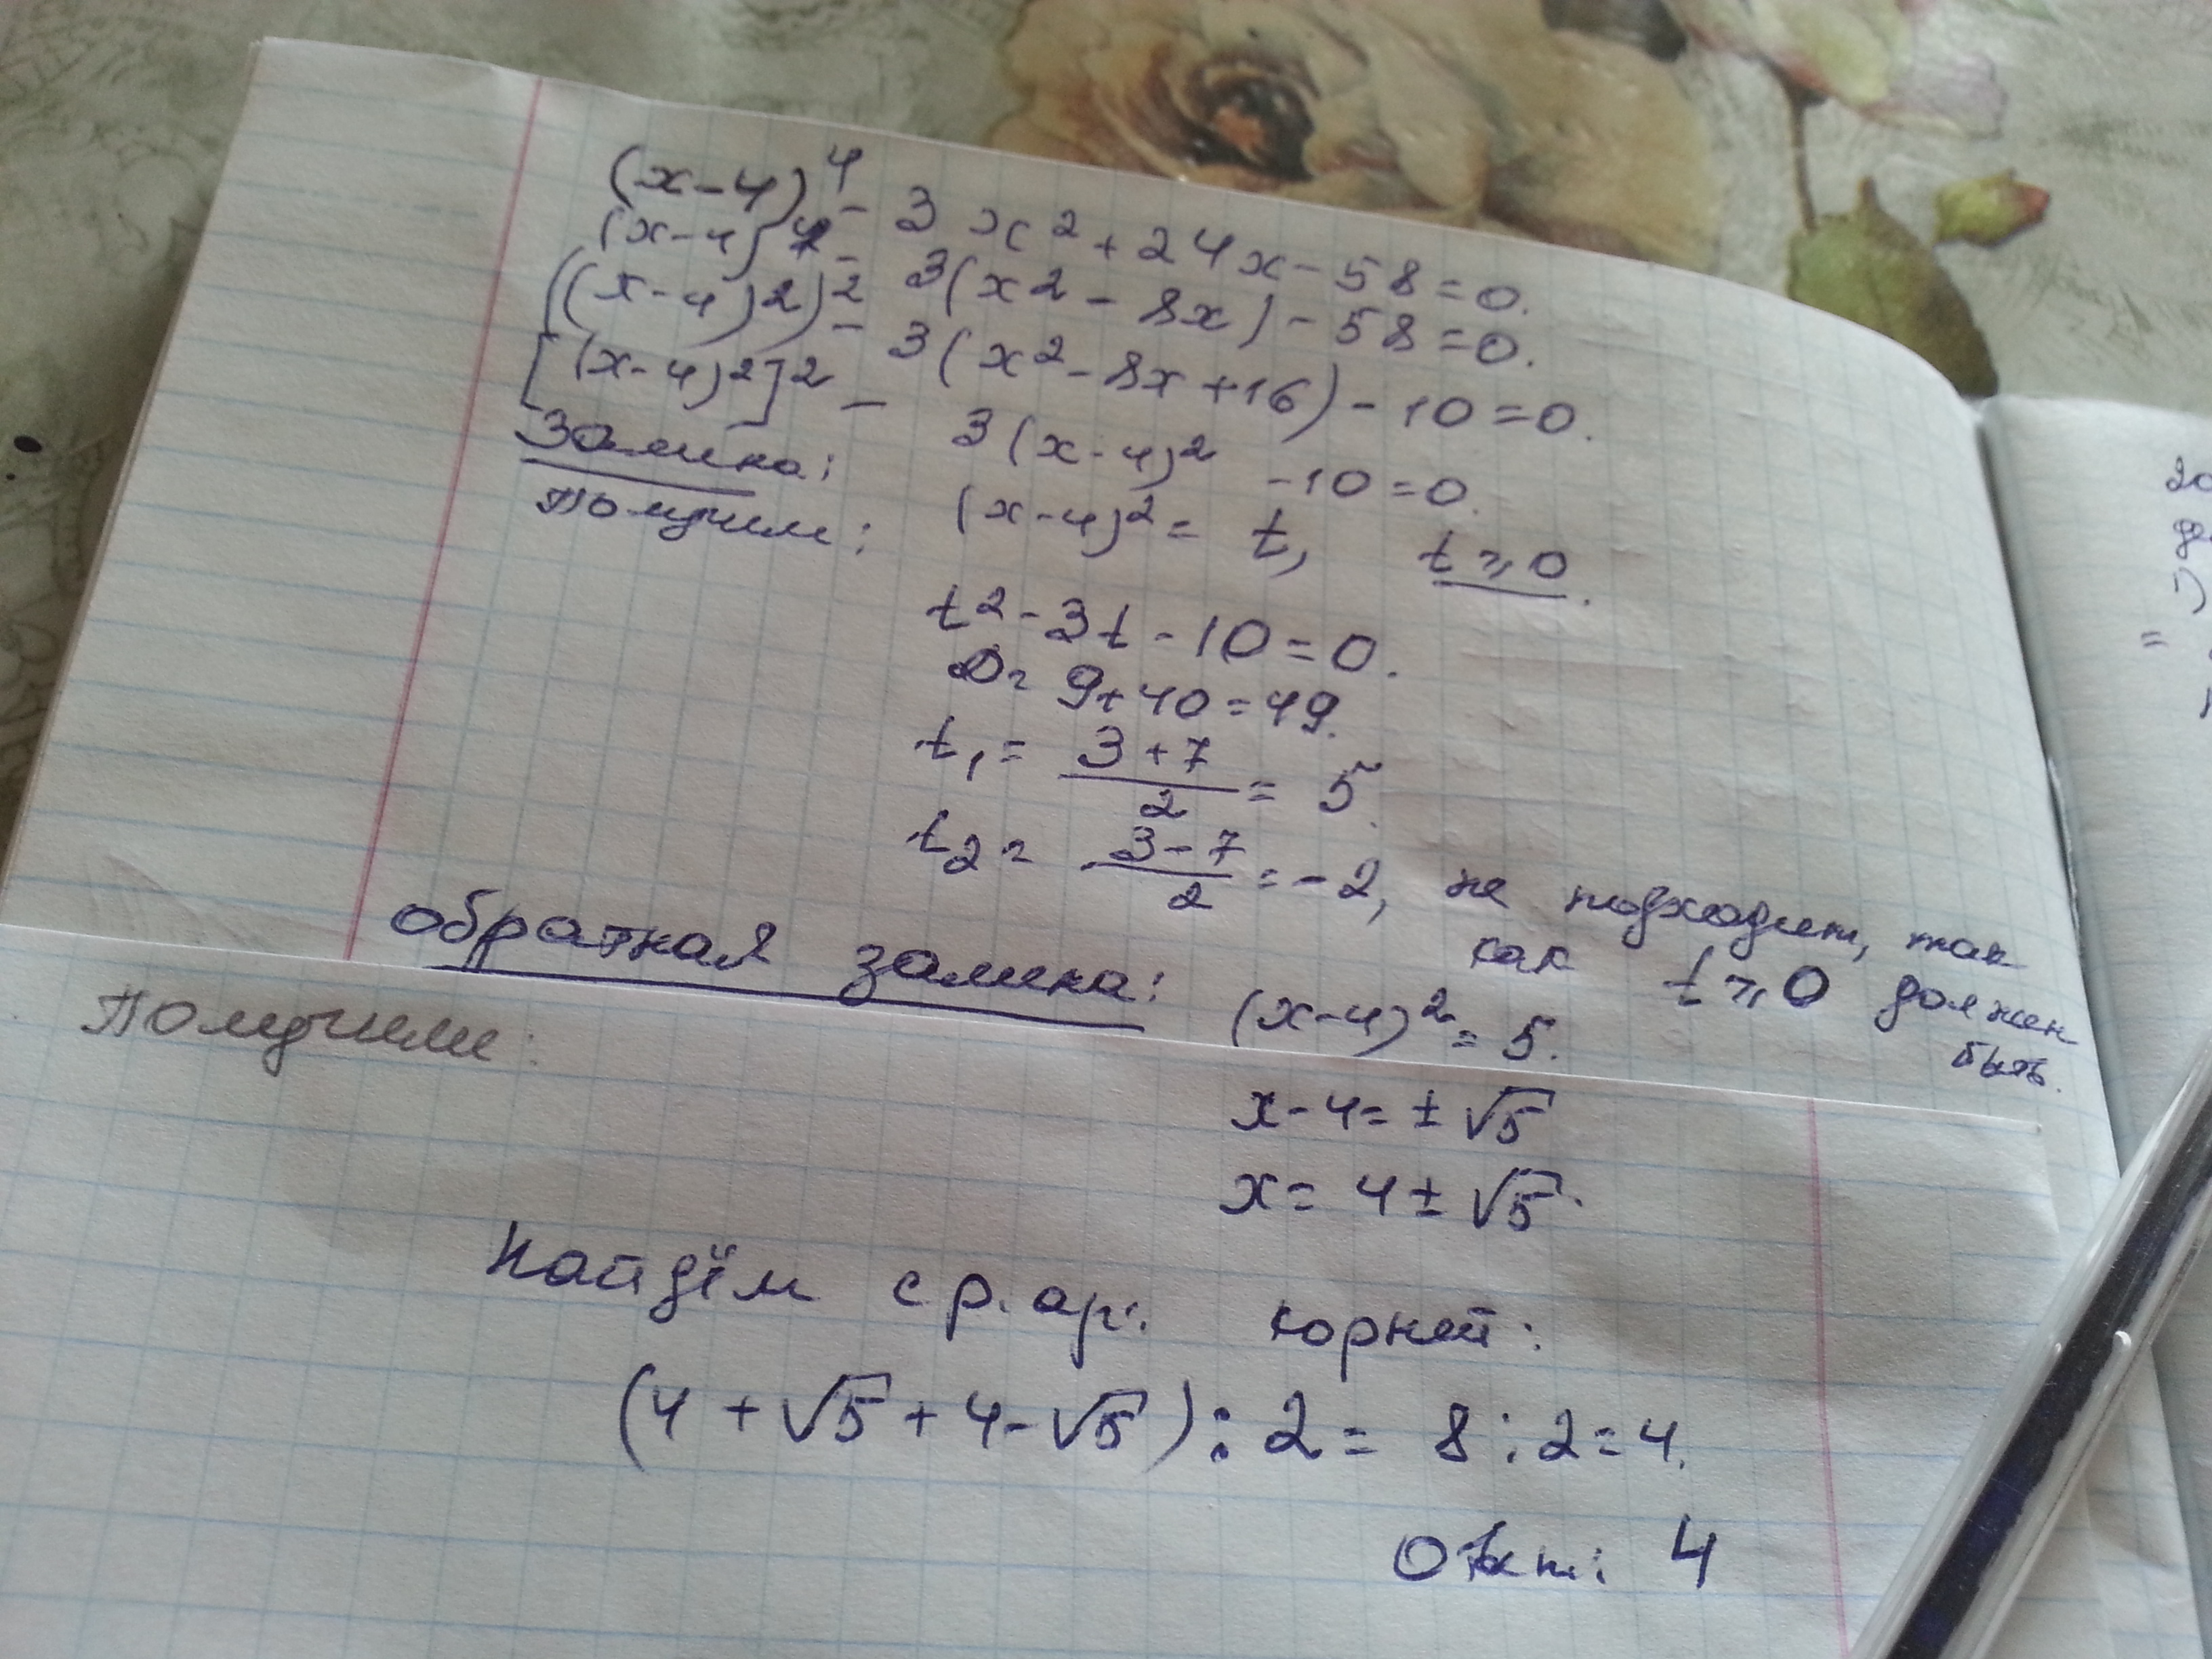 (x-4)⁴ - 3x² + 24x - 58 = 0.
(x-4)⁴ - 3(x² - 8x) - 58 = 0.
((x-4)²)² - 3(x² - 8x + 16) - 10 = 0.
[(x-4)²]² - 3(x-4)² - 10 = 0.
Замена: (x-4)² = t, t ⩾ 0.
Получим:
t² - 3t - 10 = 0.
D = 9 + 40 = 49.
t₁ = (3+7)/2 = 5.
t₂ = (3-7)/2 = -2, не подходит, так
как t ⩾ 0 должен
быть.
обратная замена: (x-4)² = 5.
Получим:
x - 4 = ± √5
x = 4 ± √5.
Найдём ср. ар. корней:
(4 + √5 + 4 - √5) : 2 = 8 : 2 = 4.
Ответ: 4